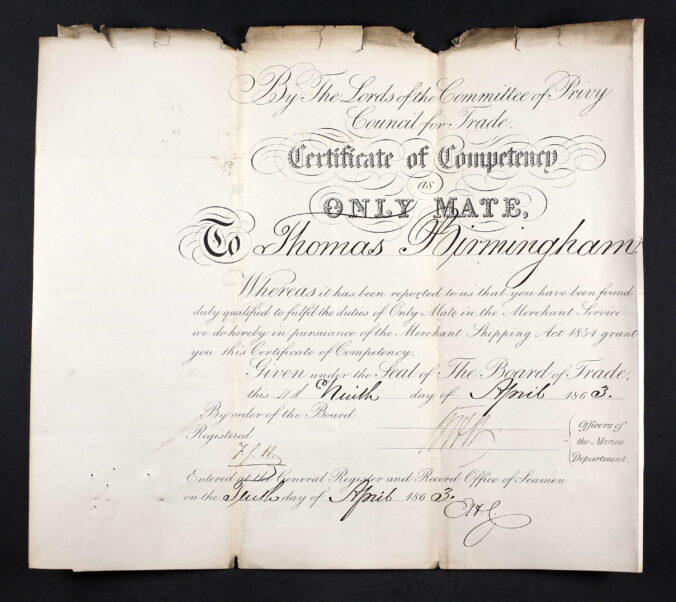 By The Lords of the Committee of Privy
Council for Trade.
Certificate of Competency
as
ONLY MATE,
To Thomas Birmingham
Whereas it has been reported to us that you have been found
duly qualified to fulfil the duties of Only Mate in the Merchant Service
we do hereby in pursuance of the Merchant Shipping Act 1854 grant
you this Certificate of Competency.
Given under the Seal of The Board of Trade,
this Ninth day of April 1863.
By order of the Board
Officers of
the Marine
Department.
Registered
Entered at the General Register and Record Office of Seamen
on the Tenth day of April 1863.